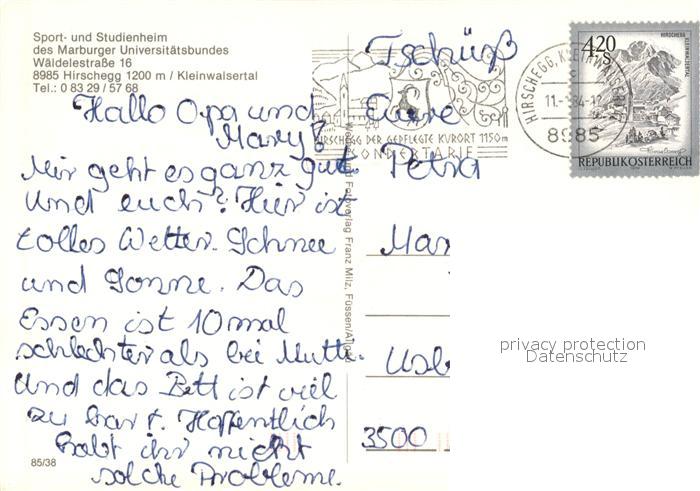 Sport- und Studienheim
des Marburger Universitätsbundes
Wäldelestraße 16
8985 Hirschegg 1200 m / Kleinwalsertal
Tel.: 0 83 29 / 57 68
Hallo Opa und
Mary!
Mir geht es ganz gut.
Und euch? Hier ist
tolles Wetter. Schnee
und Sonne. Das
Essen ist 10 mal
schlechter als bei Mutti.
Und das Bett ist viel
zu hart. Hoffentlich
habt ihr nicht
solche Probleme.
85/38
Tschüß
Eure
Petra
HIRSCHEGG DER GEPFLEGTE KURORT 1150m
SONDERTARIF
HIRSCHEGG, KLEINWALSERTAL
8985
HIRSCHEGG
KLEINWALSERTAL
4.20
S
REPUBLIK ÖSTERREICH
Fotoverlag Franz Milz, Füssen/Allgäu
3500
privacy protection
Datenschutz